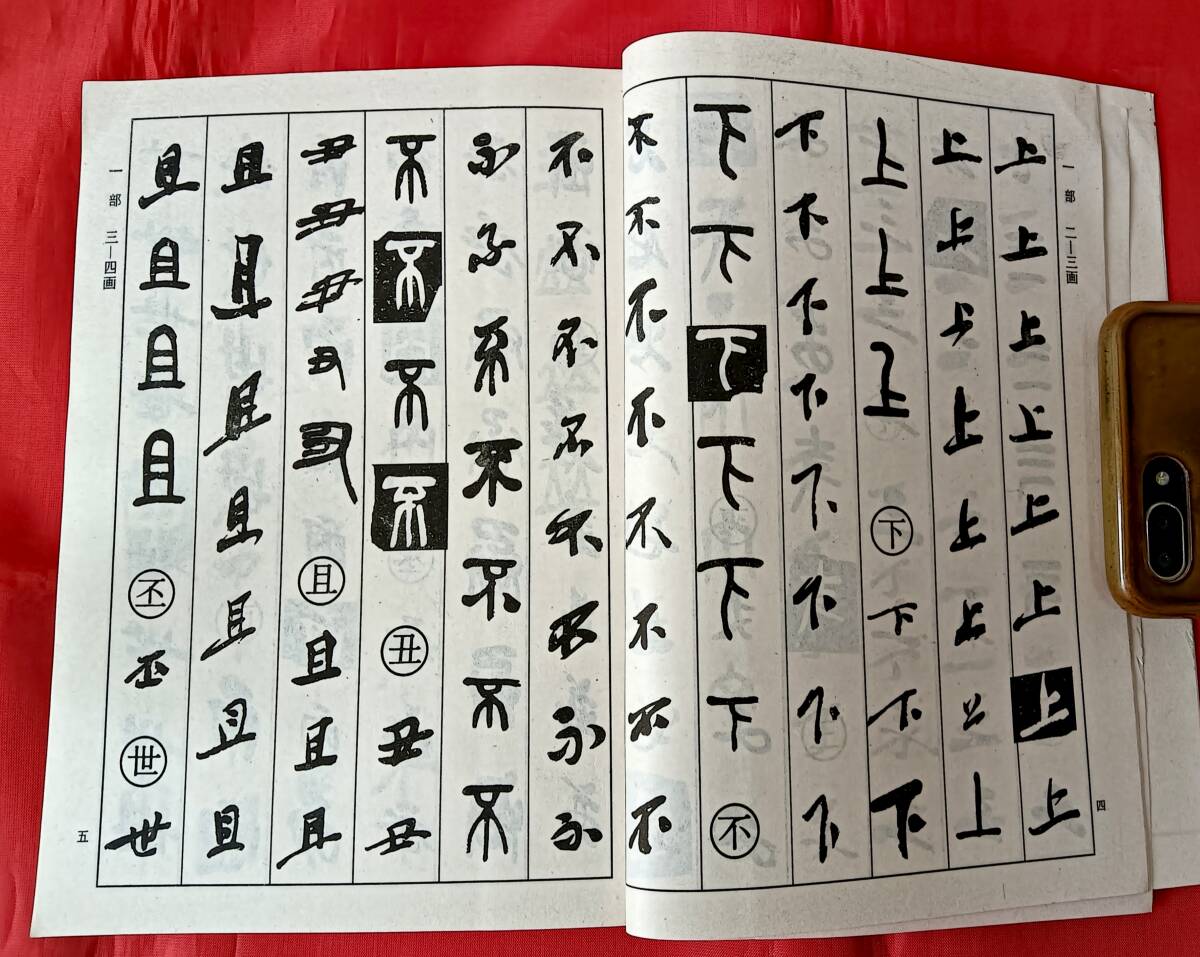 一部 二—三画
四
上上上上上上上上
上上上上上上上上
上上上下下下下
下下下下下下下下
下下下下下下不
不不不不不不不不
不不不不不不不不
不不不不不不不
不不不不丑丑丑
丑丑丑丑丑且且且且
且且且且且且且
且且且且丕丕世世
一部 三—四画
五